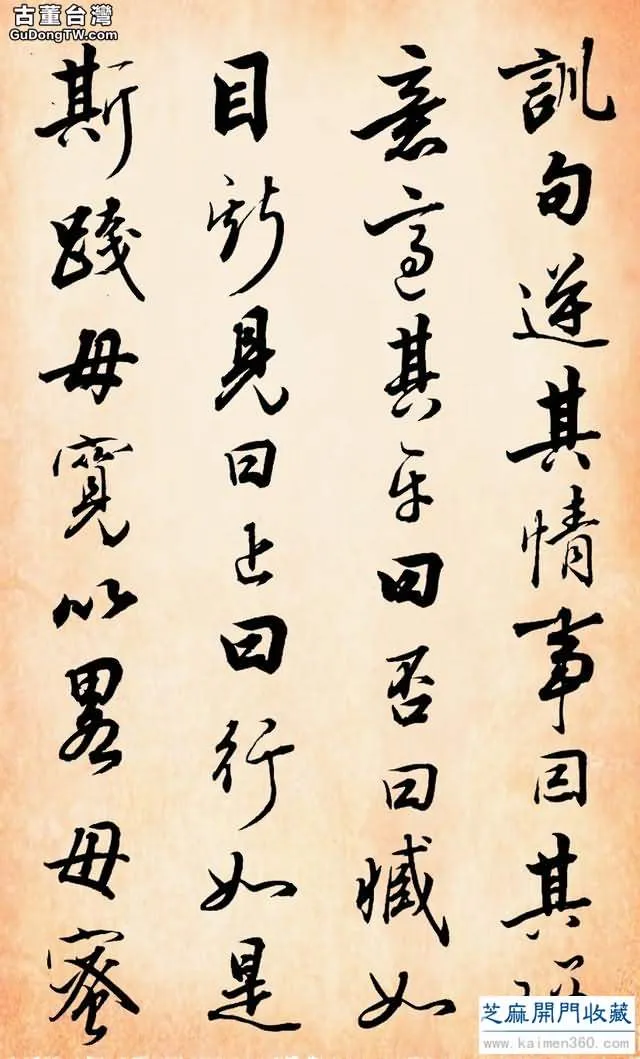 古董台灣
GuDongTW.com
訓句逆其情事因其
意適其乎曰否曰臧如
目見曰止曰行如是
斯踐毋寬以畧毋蜜
芝麻開門收藏
www.kaimen360.com